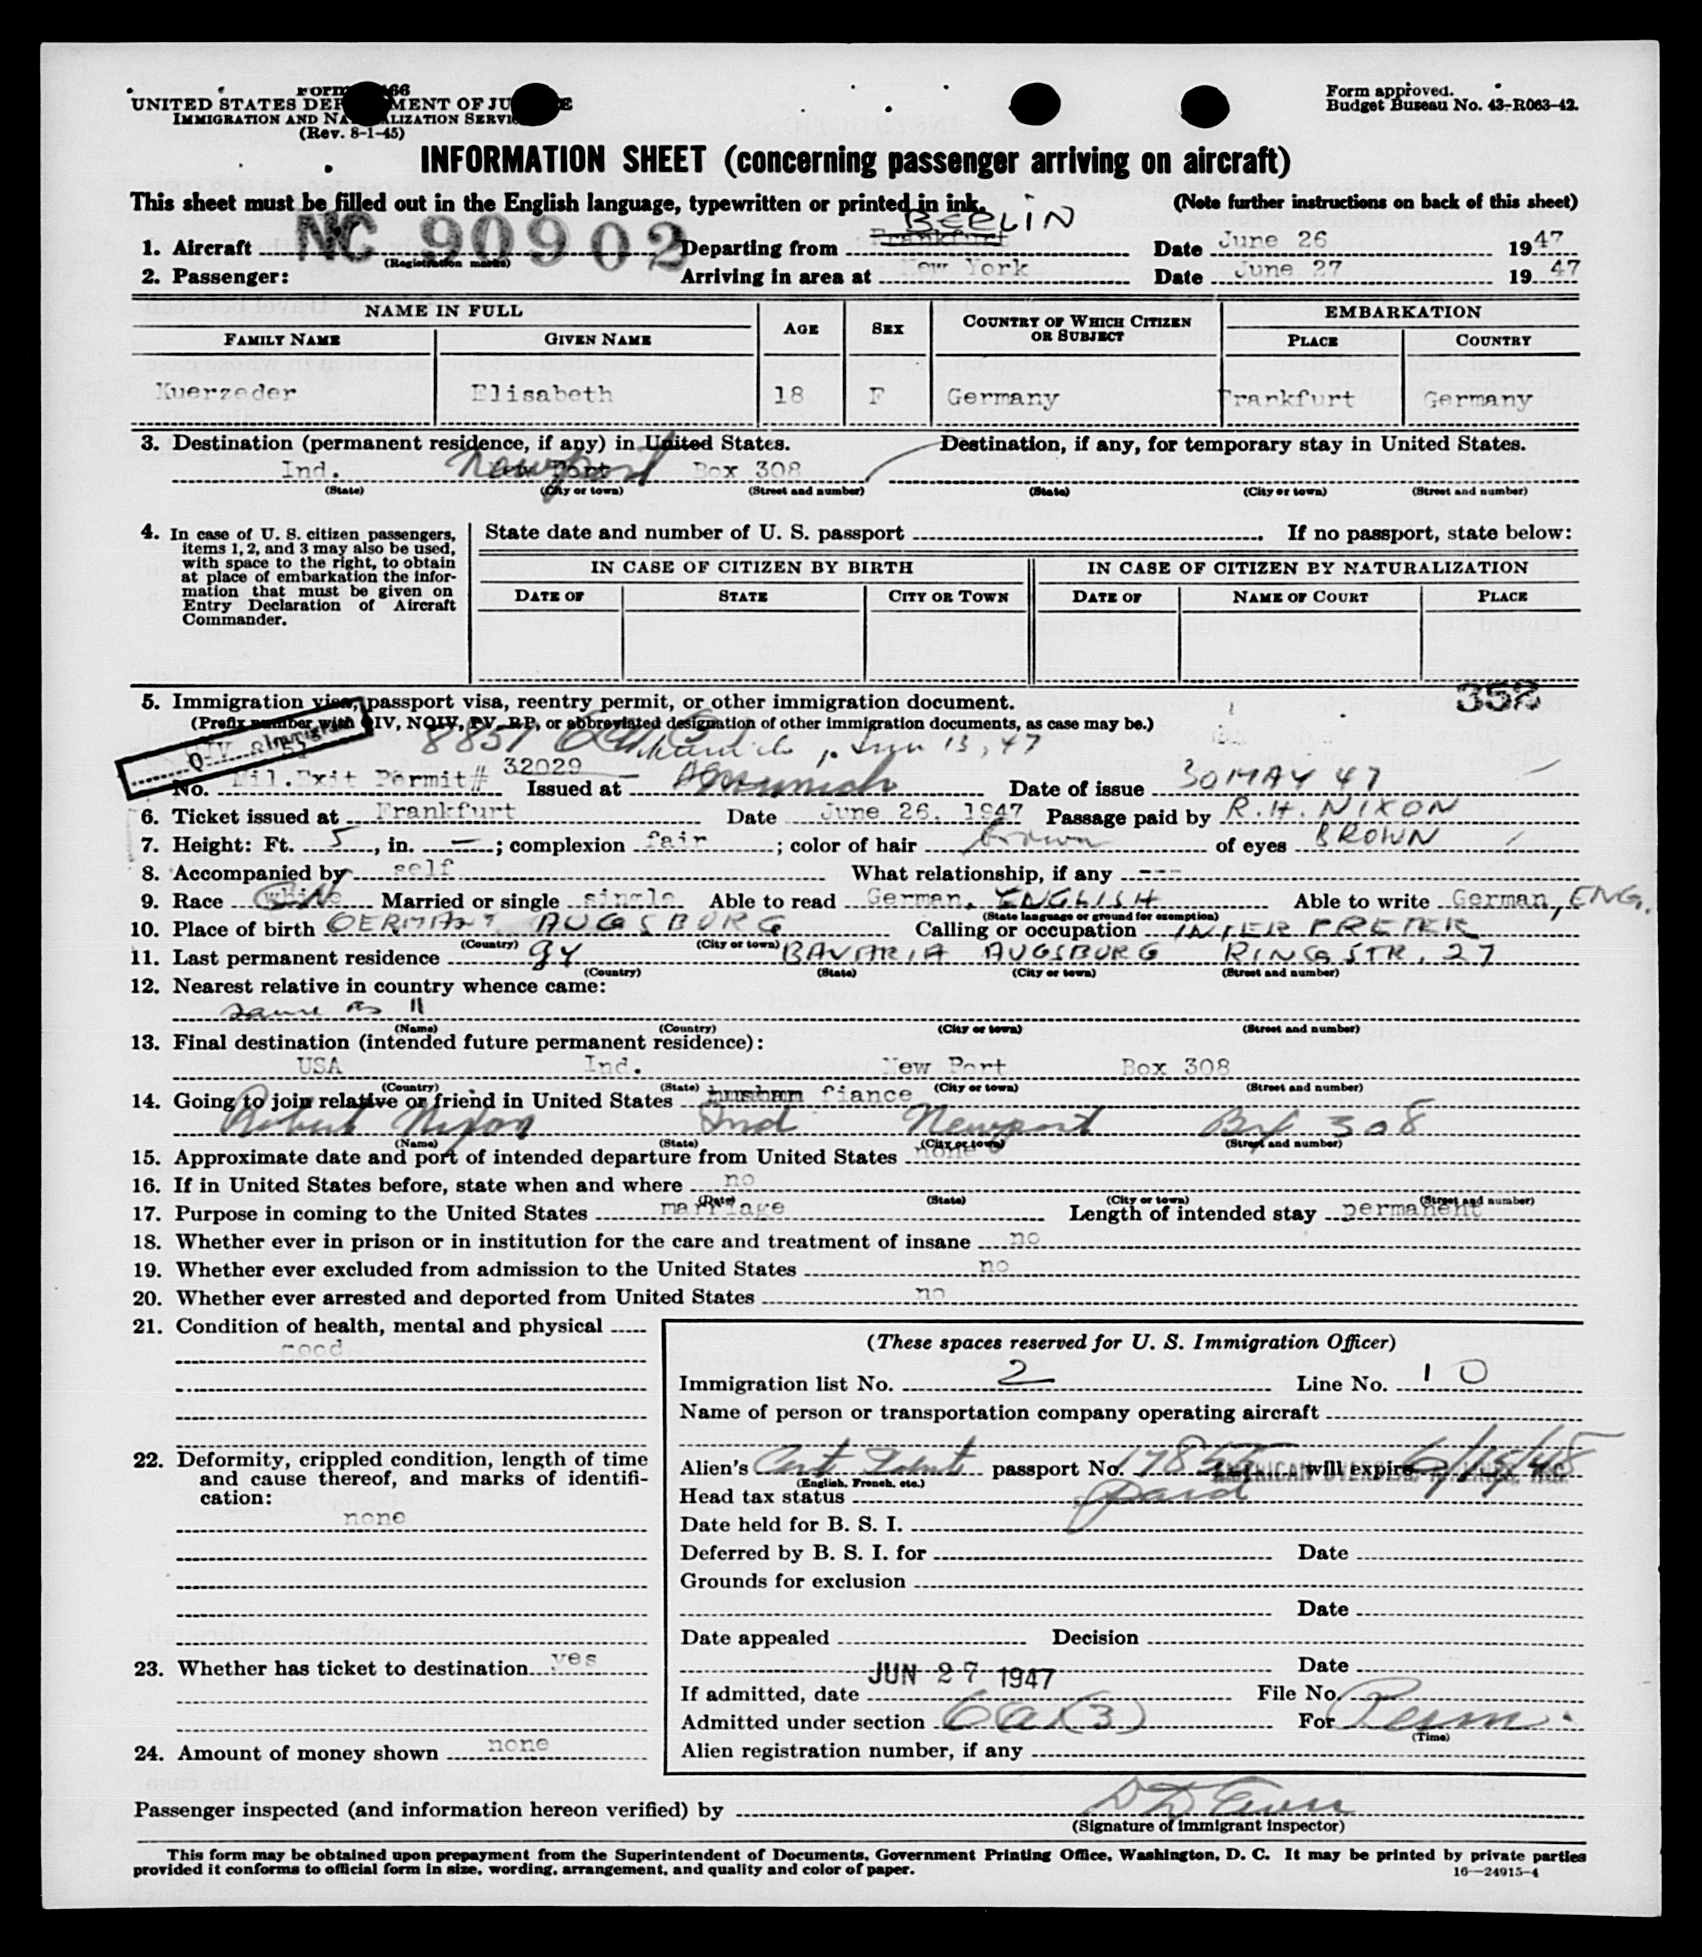 UNITED STATES DEPARTMENT OF JUSTICE
IMMIGRATION AND NATURALIZATION SERVICE
(Rev. 8-1-45)
Form approved.
Budget Bureau No. 43-R063-42.
INFORMATION SHEET (concerning passenger arriving on aircraft)
This sheet must be filled out in the English language, typewritten or printed in ink. (Note further instructions on back of this sheet)
BERLIN
1. Aircraft NC 90902 (Registration marks) Departing from Frankfurt Date June 26 1947
2. Passenger: Arriving in area at New York Date June 27 1947
NAME IN FULL
FAMILY NAME GIVEN NAME AGE SEX COUNTRY OF WHICH CITIZEN OR SUBJECT EMBARKATION PLACE COUNTRY
Kuerzeder Elisabeth 18 F Germany Frankfurt Germany
3. Destination (permanent residence, if any) in United States. Destination, if any, for temporary stay in United States.
Ind. Newport Box 308
(State) (City or town) (Street and number) (State) (City or town) (Street and number)
4. In case of U. S. citizen passengers, items 1, 2, and 3 may also be used, with space to the right, to obtain at place of embarkation the information that must be given on Entry Declaration of Aircraft Commander.
State date and number of U. S. passport . If no passport, state below:
IN CASE OF CITIZEN BY BIRTH IN CASE OF CITIZEN BY NATURALIZATION
DATE OF STATE CITY OR TOWN DATE OF NAME OF COURT PLACE
5. Immigration visa, passport visa, reentry permit, or other immigration document. 358
(Prefix number with QIV, NQIV, PV, RP, or abbreviated designation of other immigration documents, as case may be.)
8851 13, 47
No. Mil.Exit Permit# 32029 Issued at Munich Date of issue 30 MAY 47
6. Ticket issued at Frankfurt Date June 26, 1947 Passage paid by R.H. NIXON
7. Height: Ft. 5, in. —; complexion fair; color of hair brown of eyes BROWN
8. Accompanied by self What relationship, if any ---
9. Race white Married or single single Able to read German, ENGLISH Able to write German, ENG.
(State language or ground for exemption)
10. Place of birth GERMANY AUGSBURG Calling or occupation INTERPRETER
(Country) (City or town)
11. Last permanent residence gy BAVARIA AUGSBURG RINGSTR. 27
(Country) (State) (City or town) (Street and number)
12. Nearest relative in country whence came:
same as 11
(Name) (Country) (City or town) (Street and number)
13. Final destination (intended future permanent residence):
USA Ind. New Port Box 308
(Country) (State) (City or town) (Street and number)
14. Going to join relative or friend in United States fiance
Robert Nixon Ind Newport Bx 308
(Name) (State) (City or town) (Street and number)
15. Approximate date and port of intended departure from United States none
16. If in United States before, state when and where no
(Date) (State) (City or town) (Street and number)
17. Purpose in coming to the United States marriage Length of intended stay permanent
18. Whether ever in prison or in institution for the care and treatment of insane no
19. Whether ever excluded from admission to the United States no
20. Whether ever arrested and deported from United States no
21. Condition of health, mental and physical
good
22. Deformity, crippled condition, length of time and cause thereof, and marks of identification:
none
23. Whether has ticket to destination yes
24. Amount of money shown none
(These spaces reserved for U. S. Immigration Officer)
Immigration list No. 2 Line No. 10
Name of person or transportation company operating aircraft
AMERICAN OVERSEAS AIRLINES, INC.
Alien's Cert Ident passport No. will expire 6/15/48
(English, French, etc.)
Head tax status paid
Date held for B. S. I.
Deferred by B. S. I. for Date
Grounds for exclusion
Date
Date appealed Decision
Date
If admitted, date JUN 27 1947 File No.
Admitted under section 6a(3) For Perm.
(Time)
Alien registration number, if any
Passenger inspected (and information hereon verified) by
(Signature of immigrant inspector)
This form may be obtained upon prepayment from the Superintendent of Documents, Government Printing Office, Washington, D. C. It may be printed by private parties
provided it conforms to official form in size, wording, arrangement, and quality and color of paper. 16—24915-4